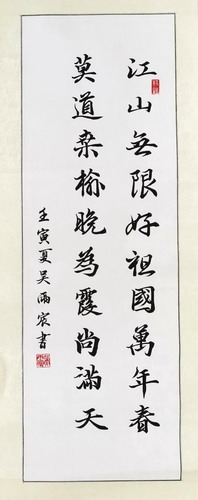 江山無限好祖國萬年春
莫道桑榆晚為霞尚滿天
壬寅夏吳雨宸書